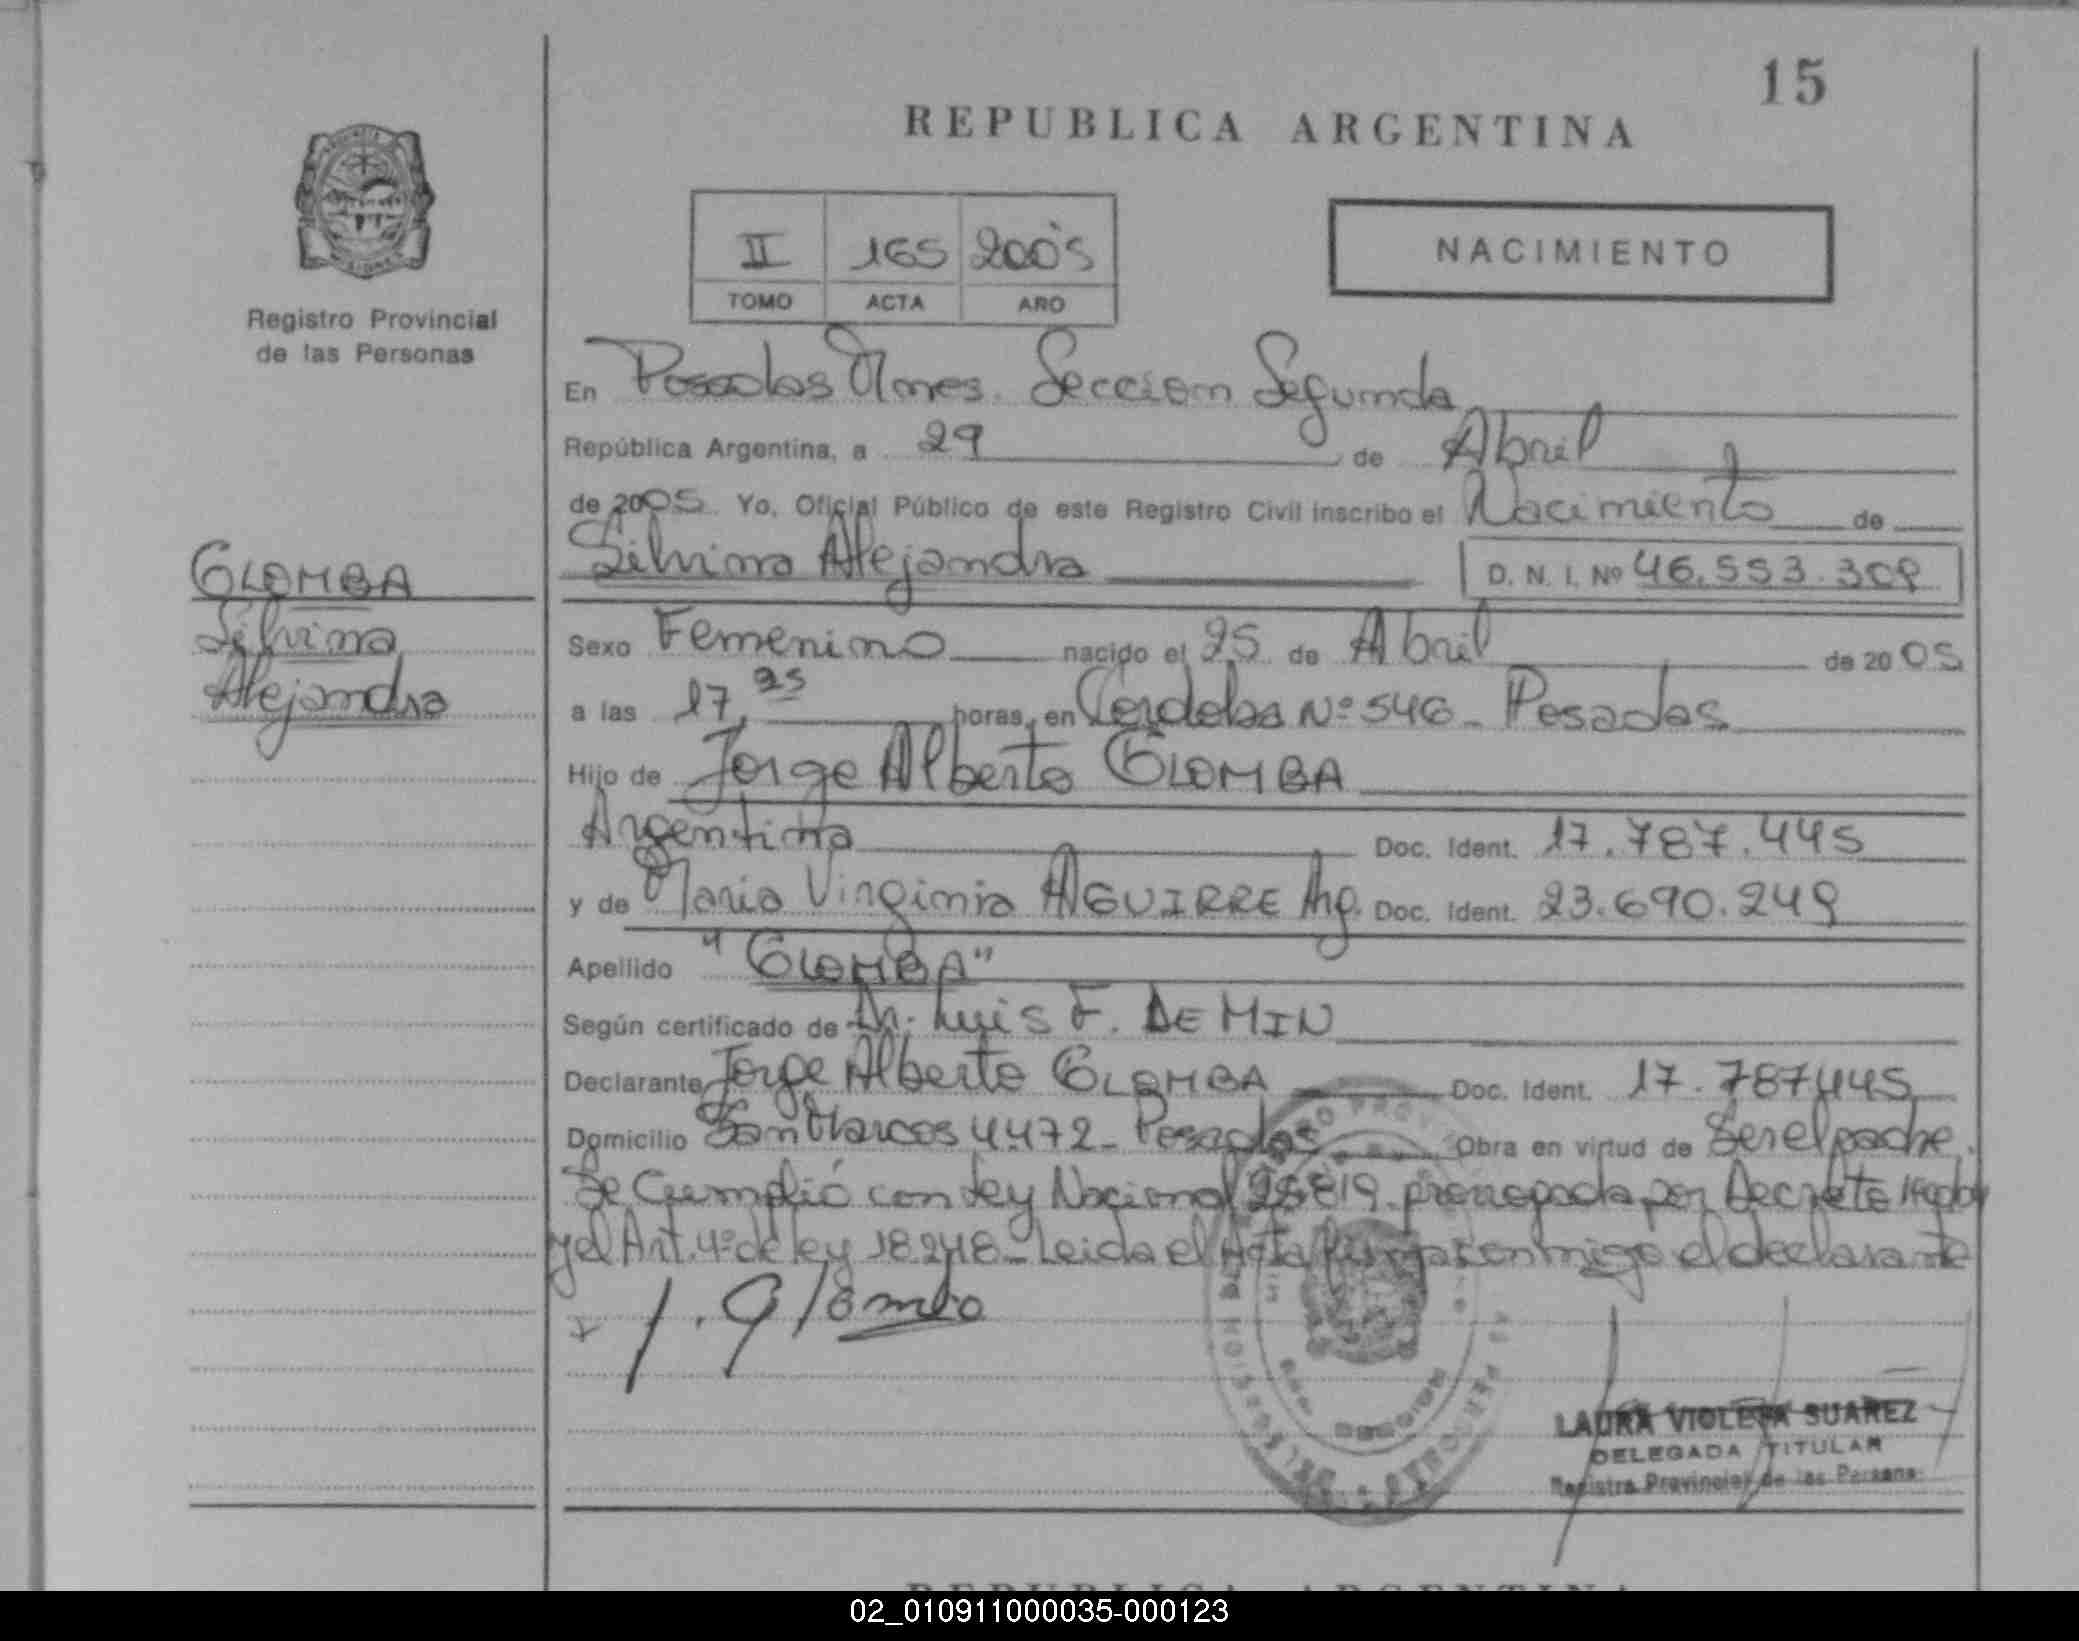 15
REPUBLICA ARGENTINA
II 165 2005
TOMO ACTA AÑO
NACIMIENTO
Registro Provincial
de las Personas
En Posadas Mnes. Seccion Segunda
República Argentina, a 29 de Abril
de 2005 Yo, Oficial Público de este Registro Civil inscribo el Nacimiento de
Silvina Alejandra D. N. I. Nº 46.553.309
GLOMBA
Silvina
Alejandra
Sexo Femenino nacido el 25 de Abril de 2005
a las 17,25 horas, en Cordoba Nº 546 - Posadas
Hijo de Jorge Alberto GLOMBA
Argentina Doc. Ident. 17.787.445
y de Maria Virginia AGUIRRE Arg. Doc. Ident. 23.690.249
Apellido "GLOMBA"
Según certificado de Dr. Luis F. DEMIN
Declarante Jorge Alberto GLOMBA Doc. Ident. 17.787445
Domicilio San Marcos 4472 - Posadas Obra en virtud de Ser el padre.
Se Cumplió con Ley Nacional 25819 prorrogada por Decreto
y el Art. 4º de ley 18248 - Leida el Acta firma conmigo el declarante
LAURA VIOLETA SUAREZ
DELEGADA TITULAR
Registro Provincial de las Personas
REPUBLICA ARGENTINA
02_010911000035-000123